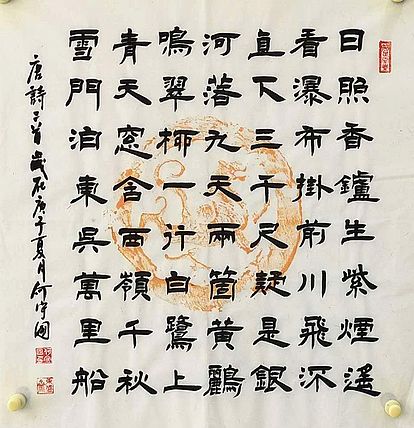 日照香鑪生紫煙遙
看瀑布掛前川飛流
直下三千尺疑是銀
河落九天兩箇黃鸝
鳴翠柳一行白鷺上
青天窓含西嶺千秋
雪門泊東吳萬里船
唐詩二首歲在庚子夏月何